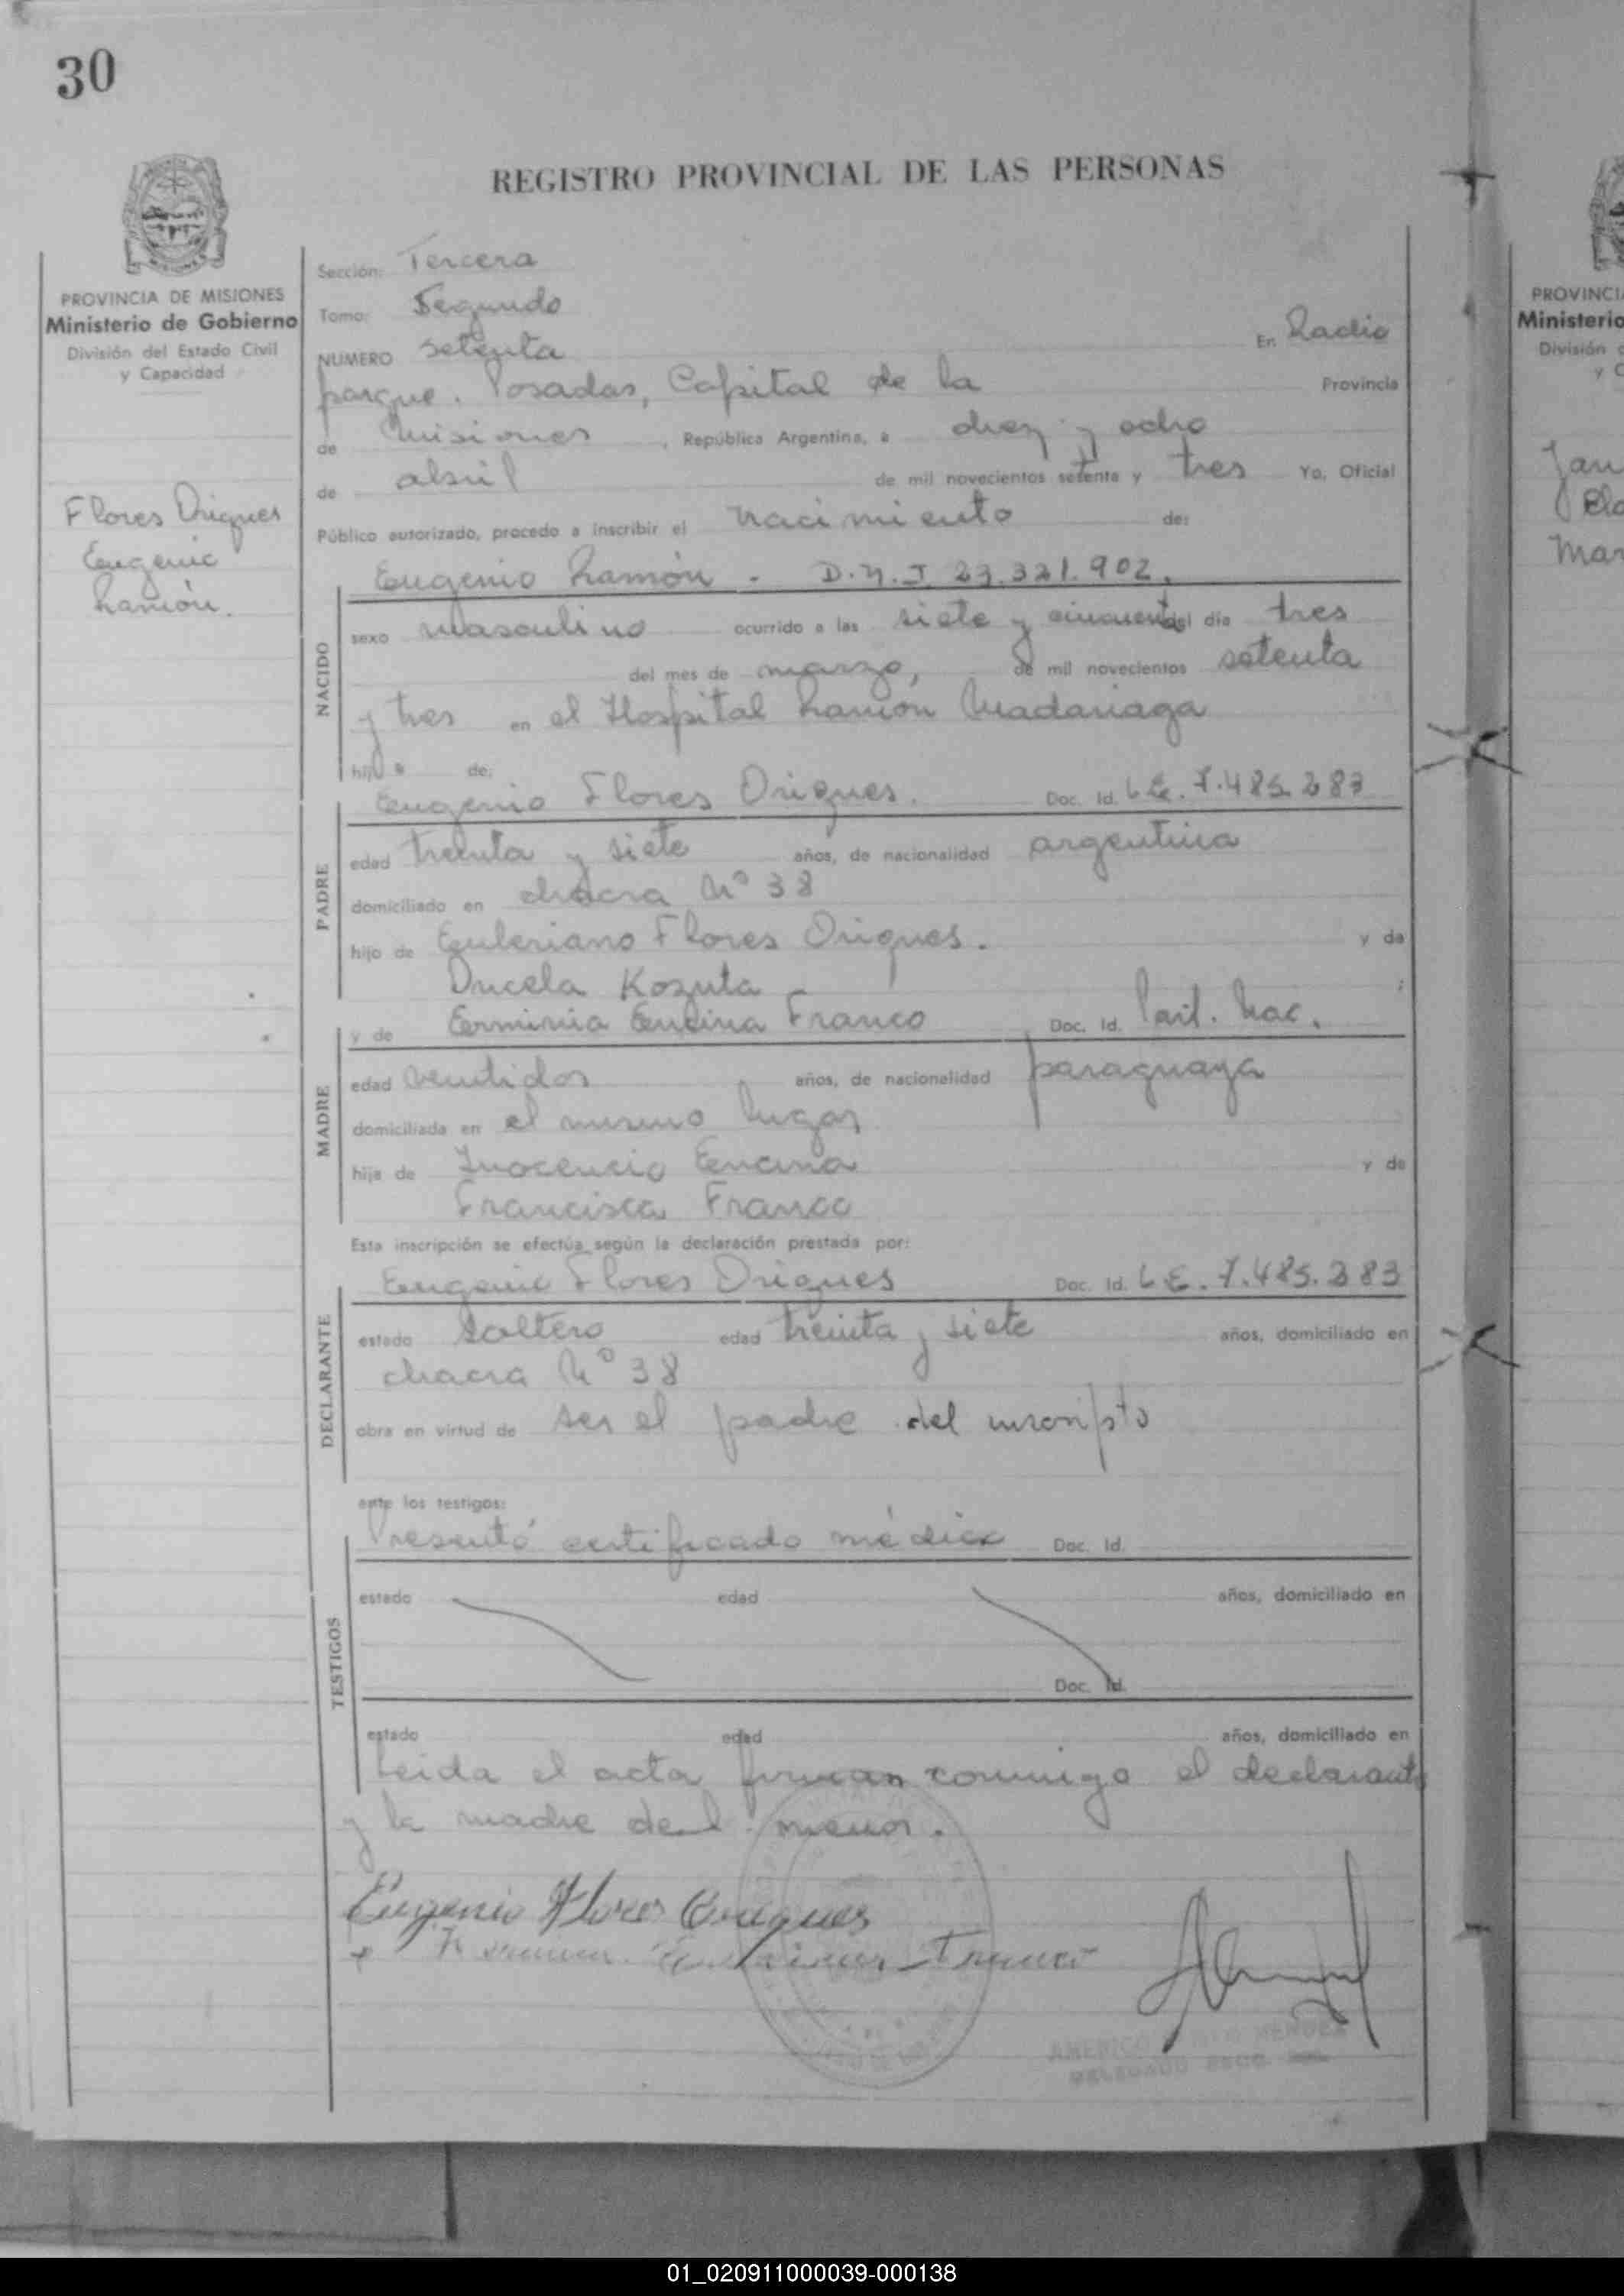 30
REGISTRO PROVINCIAL DE LAS PERSONAS
PROVINCIA DE MISIONES
Ministerio de Gobierno
División del Estado Civil
y Capacidad
Flores Origues
Eugenio
Ramón.
Sección: Tercera
Tomo: Segundo
NUMERO setenta En Radio
parque. Posadas, Capital de la Provincia
de Misiones, República Argentina, a diez y ocho
de abril de mil novecientos setenta y tres Yo, Oficial
Público autorizado, procedo a inscribir el nacimiento de:
Eugenio Ramón - D.N.I 23.321.902.
NACIDO
sexo masculino ocurrido a las siete y cincuenta del día tres
del mes de marzo, de mil novecientos setenta
y tres en el Hospital Ramón Madariaga
hijo de:
Eugenio Flores Origues. Doc. Id. L.E. 7.485.383
PADRE
edad treinta y siete años, de nacionalidad argentina
domiciliado en chacra Nº 38
hijo de Euleriano Flores Origues. y de
Kozuta
y de Erminia Encina Franco Doc. Id. Part. Nac.
MADRE
edad ventidos años, de nacionalidad paraguaya
domiciliada en el mismo lugar
hija de Inocencio Encina y de
Francisca Franco
Esta inscripción se efectúa según la declaración prestada por:
Eugenio Flores Origues Doc. Id. L.E. 7.485.383
DECLARANTE
estado soltero edad treinta y siete años, domiciliado en
chacra Nº 38
obra en virtud de ser el padre del inscripto
ante los testigos:
Presentó certificado médico Doc. Id.
TESTIGOS
estado edad años, domiciliado en
Doc. Id.
estado edad años, domiciliado en
Leida el acta firman conmigo el declarante
y la madre del menor.
Eugenio Flores Origues
Franco
AMERICO MENDEZ
DELEGADO
PROVINCIA
Ministerio
División d
y C
01_020911000039-000138